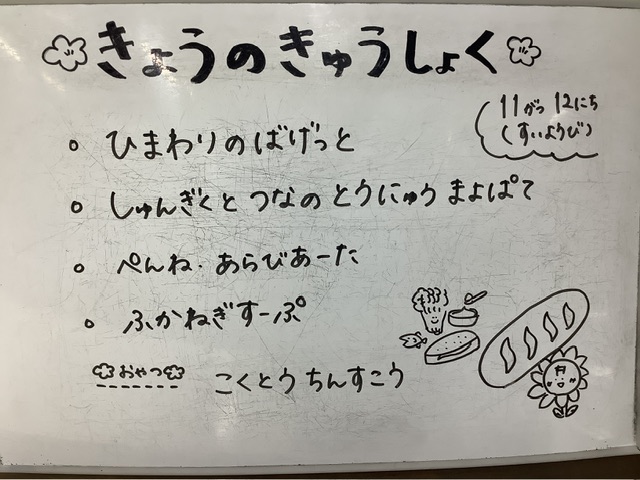 きょうのきゅうしょく
11がつ 12にち
(すいようび)
。ひまわりのばげっと
。しゅんぎくと つなの とうにゅう まよぱて
。ぺんね・あらびあーた
。ふかねぎすーぷ
おやつ こくとう ちんすこう